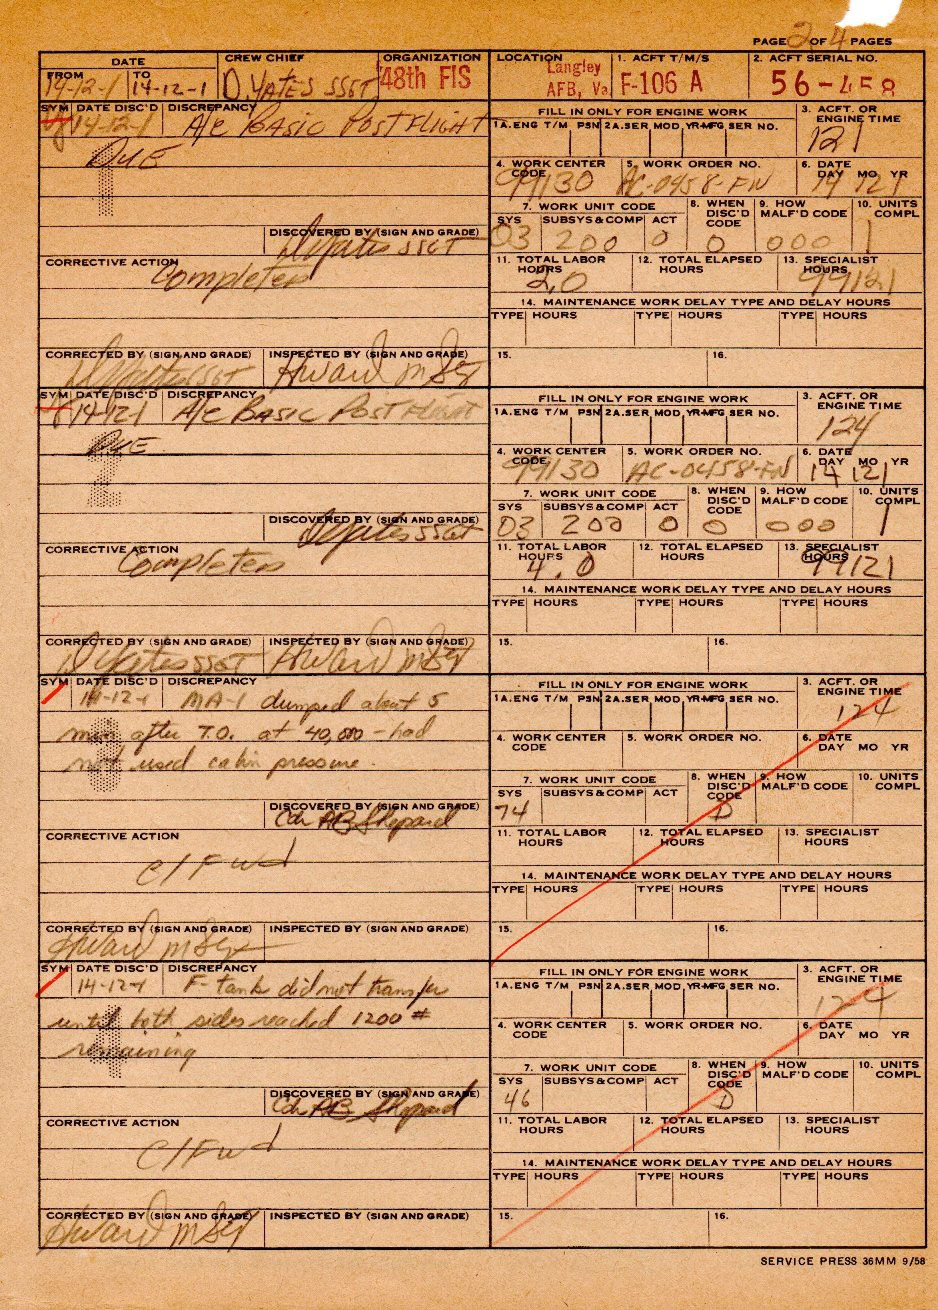 PAGE 2 OF 4 PAGES
DATE
FROM 14-12-1 TO 14-12-1
CREW CHIEF
D. YATES SSGT
ORGANIZATION
48th FIS
LOCATION
Langley
AFB, Va
1. ACFT T/M/S
F-106 A
2. ACFT SERIAL NO.
56-458
SYM DATE DISC'D DISCREPANCY
14-12-1 A/C BASIC POSTFLIGHT
DUE
1
DISCOVERED BY (SIGN AND GRADE)
D Yates SSGT
CORRECTIVE ACTION
Completed
CORRECTED BY (SIGN AND GRADE) INSPECTED BY (SIGN AND GRADE)
D Yates SSGT Howard
FILL IN ONLY FOR ENGINE WORK
1A. ENG T/M PSN 2A. SER MOD YR-MFG SER NO.
3. ACFT. OR ENGINE TIME
121
4. WORK CENTER CODE
99130
5. WORK ORDER NO.
AC-0458-FN
6. DATE
DAY MO YR
14 12 1
7. WORK UNIT CODE
SYS SUBSYS & COMP ACT
03 200 0
8. WHEN DISC'D CODE
0
9. HOW MALF'D CODE
000
10. UNITS COMPL
1
11. TOTAL LABOR HOURS
2.0
12. TOTAL ELAPSED HOURS
13. SPECIALIST HOURS
99121
14. MAINTENANCE WORK DELAY TYPE AND DELAY HOURS
TYPE HOURS TYPE HOURS TYPE HOURS
15. 16.
SYM DATE DISC'D DISCREPANCY
14-12-1 A/C BASIC POSTFLIGHT
DUE
2
DISCOVERED BY (SIGN AND GRADE)
D Yates SSGT
CORRECTIVE ACTION
Completed
CORRECTED BY (SIGN AND GRADE) INSPECTED BY (SIGN AND GRADE)
D Yates SSGT Howard
FILL IN ONLY FOR ENGINE WORK
1A. ENG T/M PSN 2A. SER MOD YR-MFG SER NO.
3. ACFT. OR ENGINE TIME
124
4. WORK CENTER CODE
99130
5. WORK ORDER NO.
AC-0458-FN
6. DATE
DAY MO YR
14 12 1
7. WORK UNIT CODE
SYS SUBSYS & COMP ACT
03 200 0
8. WHEN DISC'D CODE
0
9. HOW MALF'D CODE
000
10. UNITS COMPL
1
11. TOTAL LABOR HOURS
4.0
12. TOTAL ELAPSED HOURS
13. SPECIALIST HOURS
99121
14. MAINTENANCE WORK DELAY TYPE AND DELAY HOURS
TYPE HOURS TYPE HOURS TYPE HOURS
15. 16.
SYM DATE DISC'D DISCREPANCY
14-12-1 MA-1 dumped about 5
min after T.O. at 40,000 - had
not used cabin pressure.
3
DISCOVERED BY (SIGN AND GRADE)
Cdr AB Shepard
CORRECTIVE ACTION
C/Fwd
CORRECTED BY (SIGN AND GRADE) INSPECTED BY (SIGN AND GRADE)
Howard
FILL IN ONLY FOR ENGINE WORK
1A. ENG T/M PSN 2A. SER MOD YR-MFG SER NO.
3. ACFT. OR ENGINE TIME
124
4. WORK CENTER CODE
5. WORK ORDER NO.
6. DATE
DAY MO YR
7. WORK UNIT CODE
SYS SUBSYS & COMP ACT
74
8. WHEN DISC'D CODE
D
9. HOW MALF'D CODE
10. UNITS COMPL
11. TOTAL LABOR HOURS
12. TOTAL ELAPSED HOURS
13. SPECIALIST HOURS
14. MAINTENANCE WORK DELAY TYPE AND DELAY HOURS
TYPE HOURS TYPE HOURS TYPE HOURS
15. 16.
SYM DATE DISC'D DISCREPANCY
14-12-1 F-tank did not transfer
until both sides reached 1200 #
remaining
4
DISCOVERED BY (SIGN AND GRADE)
Cdr AB Shepard
CORRECTIVE ACTION
C/Fwd
CORRECTED BY (SIGN AND GRADE) INSPECTED BY (SIGN AND GRADE)
Howard
FILL IN ONLY FOR ENGINE WORK
1A. ENG T/M PSN 2A. SER MOD YR-MFG SER NO.
3. ACFT. OR ENGINE TIME
124
4. WORK CENTER CODE
5. WORK ORDER NO.
6. DATE
DAY MO YR
7. WORK UNIT CODE
SYS SUBSYS & COMP ACT
46
8. WHEN DISC'D CODE
D
9. HOW MALF'D CODE
10. UNITS COMPL
11. TOTAL LABOR HOURS
12. TOTAL ELAPSED HOURS
13. SPECIALIST HOURS
14. MAINTENANCE WORK DELAY TYPE AND DELAY HOURS
TYPE HOURS TYPE HOURS TYPE HOURS
15. 16.
SERVICE PRESS 36MM 9/58